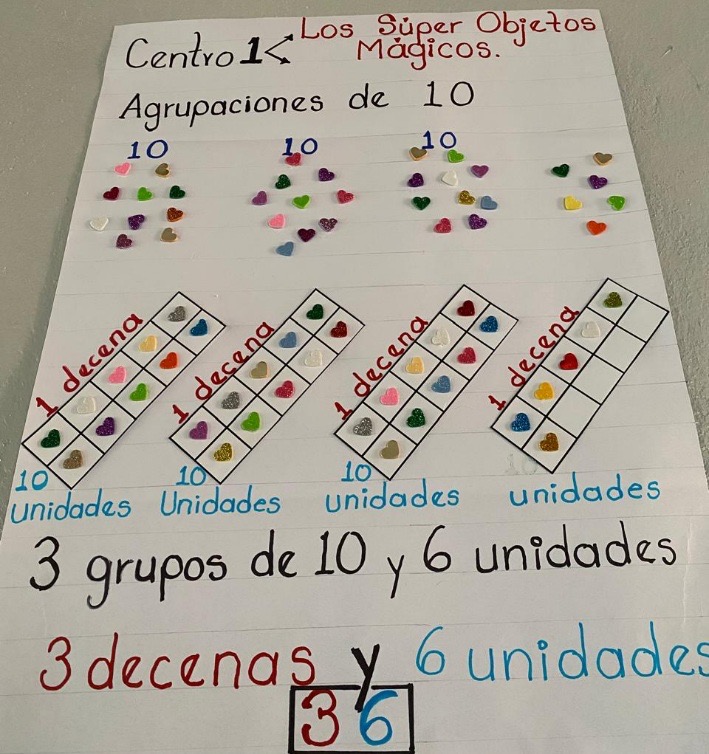 Centro 1 < Los Súper Objetos
Mágicos.
Agrupaciones de 10
10 10 10
1 decena 1 decena 1 decena 1 decena
10 10 10 10
unidades Unidades unidades unidades
3 grupos de 10 y 6 unidades
3 decenas y 6 unidades
36